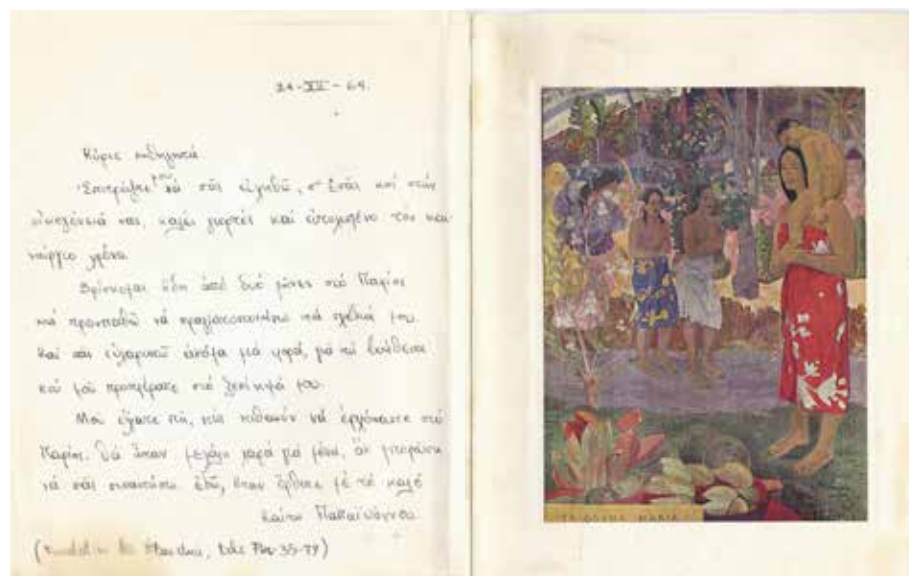 24-XII-64.
Κύριε καθηγητά
Ἐπιτρέψτε μου νά σᾶς εὐχηθῶ, σ' Ἐσᾶς καί στήν
οἰκογένειά σας, καλές γιορτές καί εὐτυχισμένο τόν και-
νούργιο χρόνο.
Βρίσκομαι ἤδη ἀπό δυό μῆνες στό Παρίσι
καί προσπαθῶ νά πραγματοποιήσω τά σχέδιά μου.
Καί σᾶς εὐχαριστῶ ἀκόμα μιά φορά, γιά τή βοήθεια
πού μοῦ προσφέρατε στό ξεκίνημά μου.
Μοῦ εἴχατε πῆ, πώς πιθανόν νά ἐρχόσαστε στό
Παρίσι. Θά ἦταν μεγάλη χαρά γιά μένα, ἄν μποροῦσα
νά σᾶς συναντήσω ἐδῶ, ὅταν ἔρθετε μέ τό καλό
Καίτη
IA ORANA MARIA